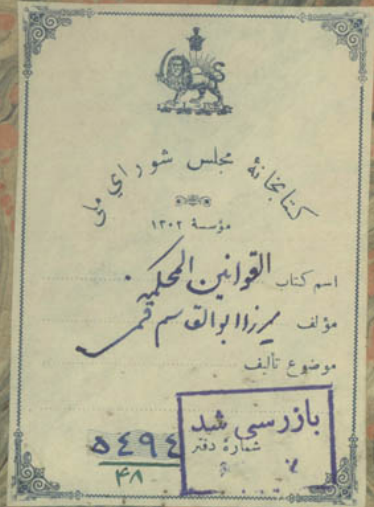 کتابخانهٔ مجلس شورای ملی
مؤسسهٔ ۱۳۰۲
اسم کتاب القوانین المحکمه
مؤلف میرزا ابوالقاسم قمی
موضوع تألیف
بازرسی شد
شماره دفتر
۵۴۹۴
۴۸